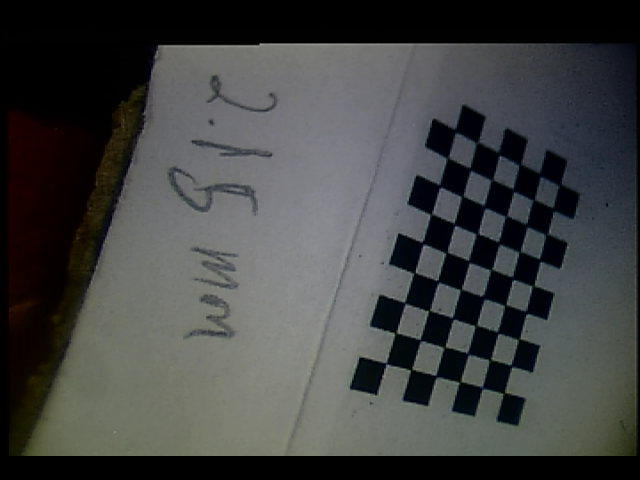 2.15 mm